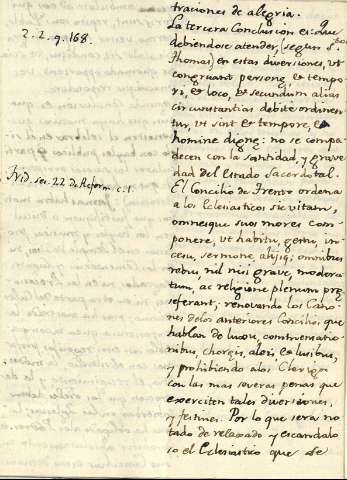 traciones de alegria.
La tercera Conclusion es: que
2. 2. q. 168.
debiendose atender (segun Sto
Thomas) en estas diversiones, ut
congruant personę, & tempo
ri, & loco, & secundum alias
circunstantias debite ordinen
tur, ut sint & tempore, &
homine dignę: no se compa
decen con la santidad, y grave
dad del Estado Sacerdotal.
Trid. ses. 22 de Reform. c. 1.
El Concilio de Trento ordena
a los Eclesiasticos sic vitam,
omnesque suos mores com
ponere, ut habitu, gestu, in
cesu, sermone, alijsq; omnibus
rebus, nil nisi grave, modera
tum, ac religione plenum prę
seferant; renovando los Cano
nes delos anteriores Concilios que
hablan de luxu, commesatio
nibus, choreis, aleis, & lusibus,
y prohibiendo alos Clerigos
con las mas severas penas que
exerciten tales diversiones,
y festines. Por lo que sera no
tado de relaxado y escandalo
so el Eclesiastico que se